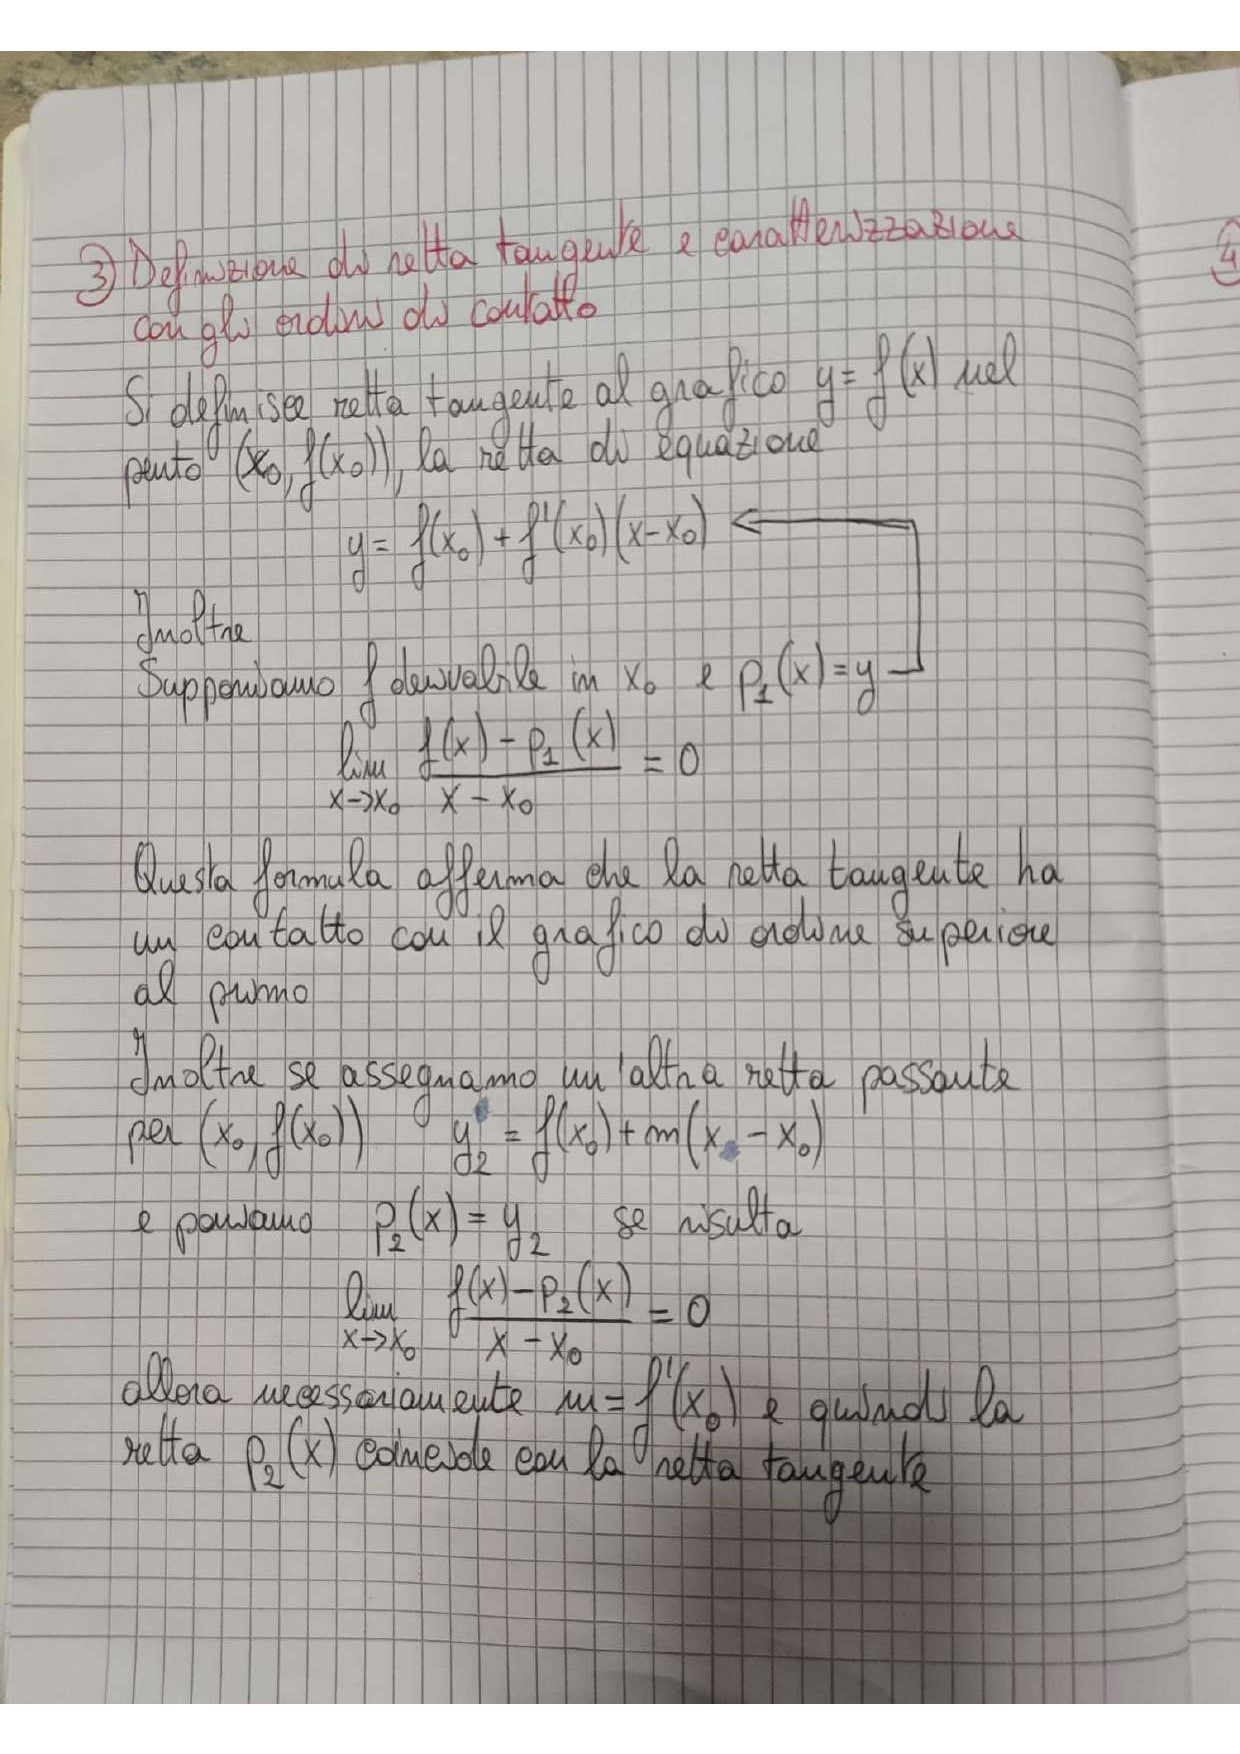 ③ Definizione di retta tangente e caratterizzazione
con gli ordini di contatto
Si definisce retta tangente al grafico y = f(x) nel
punto (x₀, f(x₀)), la retta di equazione
y = f(x₀) + f'(x₀)(x-x₀)
Inoltre
Supponiamo f derivabile in x₀ e p₁(x) = y
lim f(x) - p₁(x) / x - x₀ = 0
x->x₀
Questa formula afferma che la retta tangente ha
un contatto con il grafico di ordine superiore
al primo
Inoltre se assegnamo un'altra retta passante
per (x₀, f(x₀)) y₂ = f(x₀) + m(x - x₀)
e poniamo p₂(x) = y₂ se risulta
lim f(x) - p₂(x) / x - x₀ = 0
x->x₀
allora necessariamente m = f'(x₀) e quindi la
retta p₂(x) coincide con la retta tangente
4